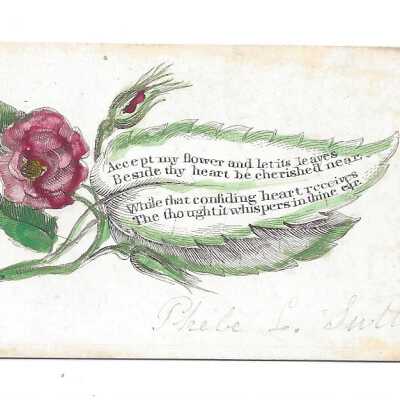 Accept my flower and let its leaves
Beside thy heart be cherished near.
While that confiding heart receives
The thought it whispers in thine ear.
Phebe L.